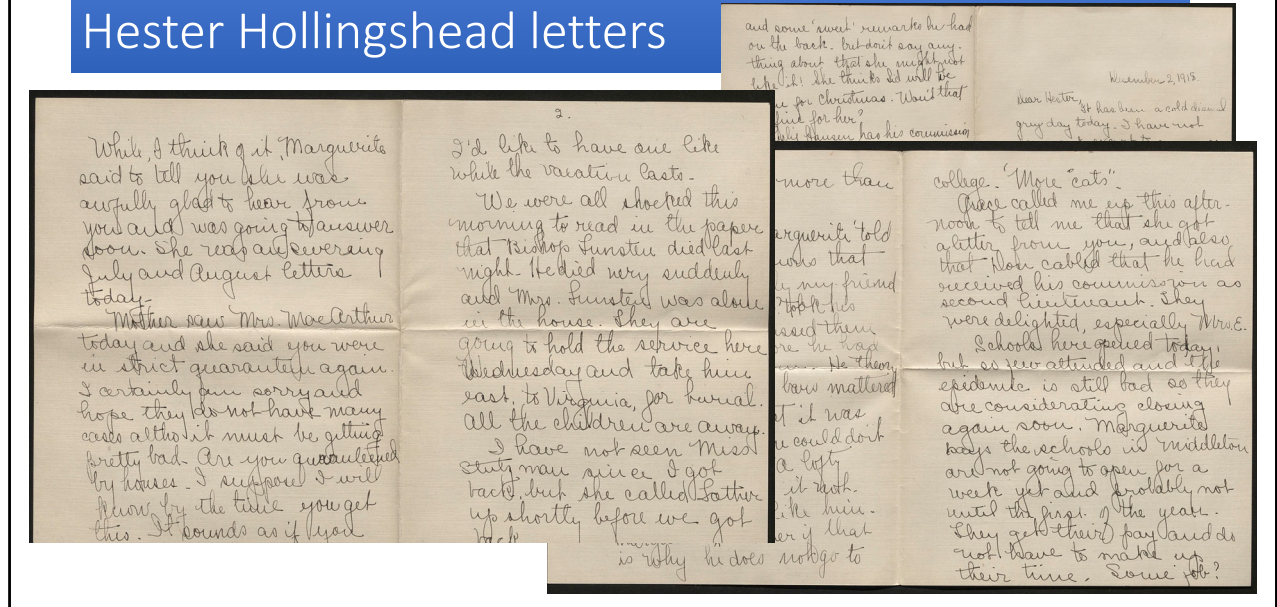 Hester Hollingshead letters
and some 'sweet' remarks he had
on the back. but don't say any-
thing about that she might not
like it! She thinks Sid will be
for Christmas. Won't that
fine for her?
Hansen has his commission
December 2, 1918.
Dear Hester,
It has been a cold dismal
grey day today. I have not
While, I think of it, Marguerite
said to tell you she was
awfully glad to hear from
you and was going to answer
soon. She was answering
July and August letters
today.
Mother saw Mrs. MacArthur
today and she said you were
in strict quarantein again.
I certainly am sorry and
hope they do not have many
cases altho it must be getting
pretty bad. Are you quaranteened
by houses. I suppose I will
know by the time you get
this. It sounds as if you
2.
I'd like to have one like
while the vacation lasts.
We were all shocked this
morning to read in the paper
that Bishop Funsten died last
night. He died very suddenly
and Mrs. Funsten was alone
in the house. They are
going to hold the service here
Wednesday and take him
east, to Virginia, for burial.
All the children are away.
I have not seen Miss
Stutzman since I got
back, but she called Father
up shortly before we got
back
more than
told
that
my friend
took his
them
he had
He then
mattered
it was
could do it
a lofty
it not.
like him.
if that
is why he does not go to
college. "More "cats".
Grace called me up this after-
noon to tell me that she got
a letter from you, and also
that Don cabled that he had
received his commission as
second lieutenant. They
were delighted, especially Mrs. E.
Schools here opened today,
but so few attended and the
epidemic is still bad so they
are considerating closing
again soon. Marguerite
says the schools in Middleton
are not going to open for a
week yet and probably not
until the first of the year.
They get their pay and do
not have to make up
their time. Some job?